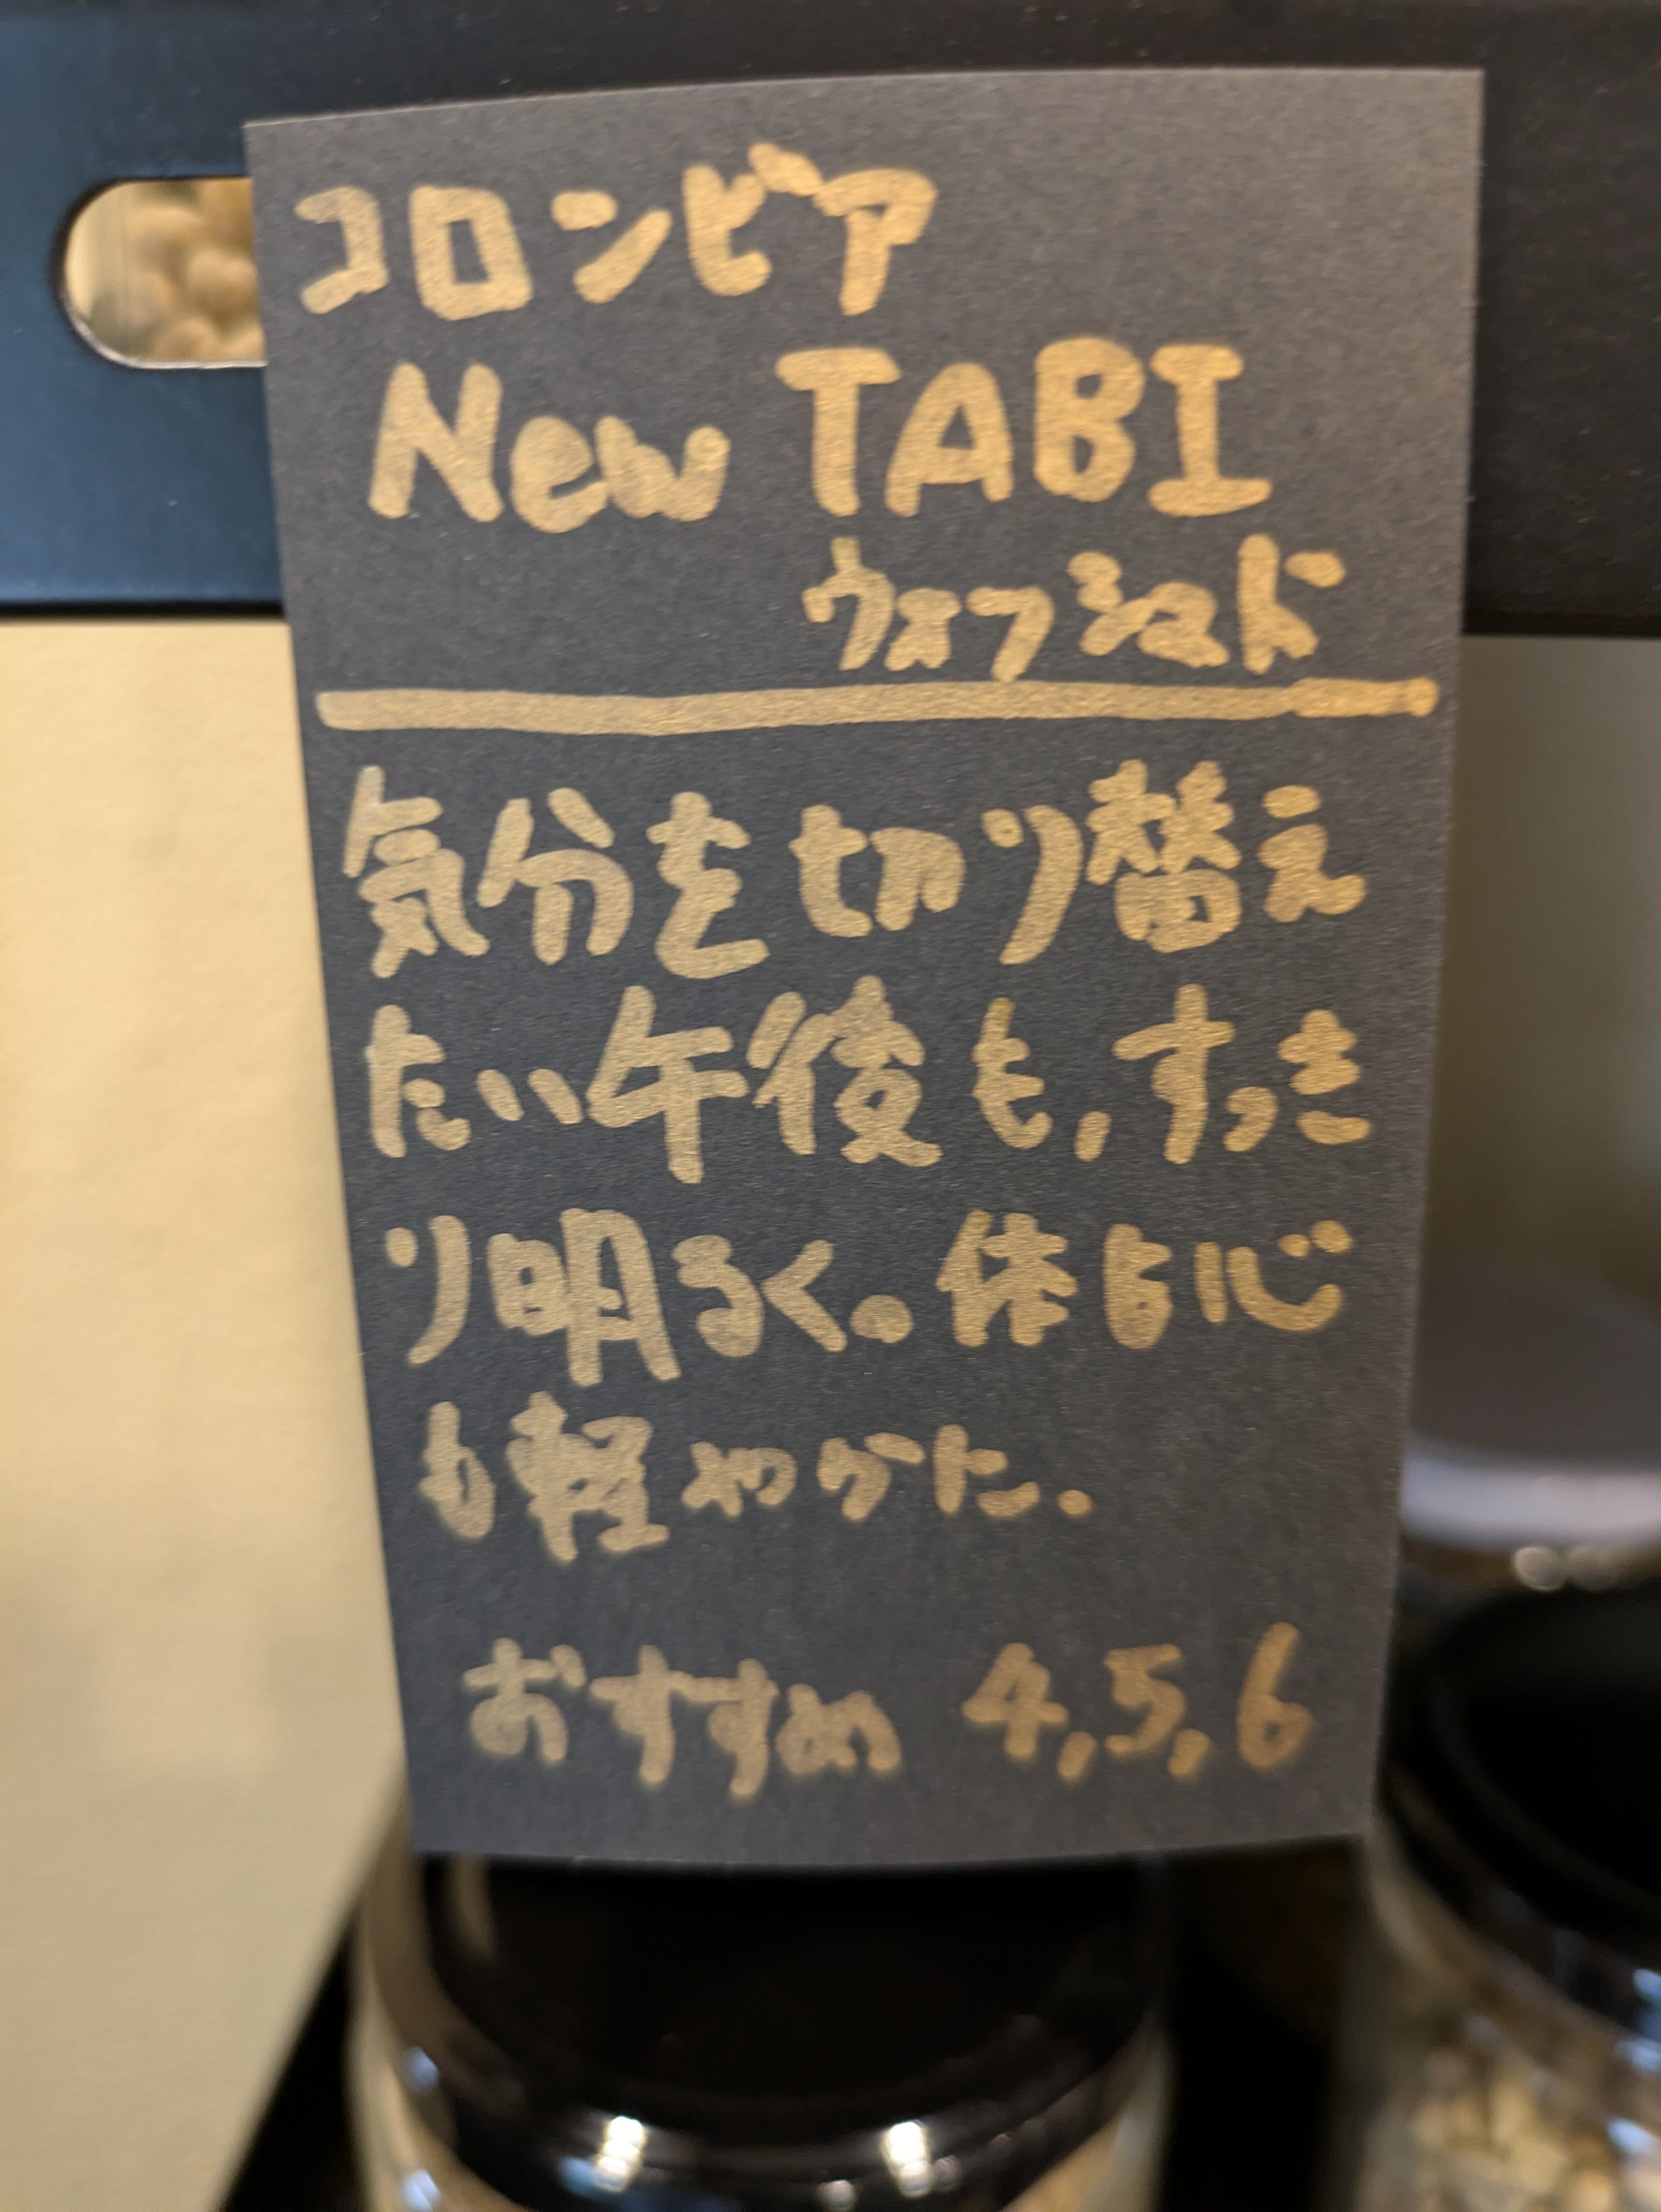 コロンビア
New TABI
ウォッシュド
気分を切り替え
たい午後も,すっき
り明るく。体も心
も軽やかに.
おすすめ 4,5,6